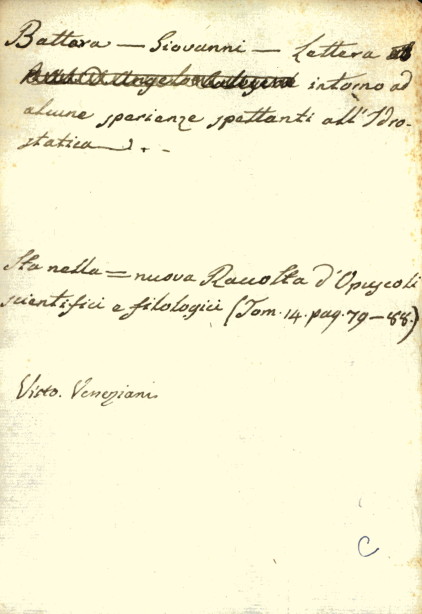 Battara — Giovanni — Lettera al
Angelo intorno ad
alcune sperienze spettanti all'Idro-
statica —. . –
Sta nella = nuova Raccolta d'Opuscoli
scientifici e filologici (Tom. 14. pag. 79–88.)
Visto. Veneziani
C